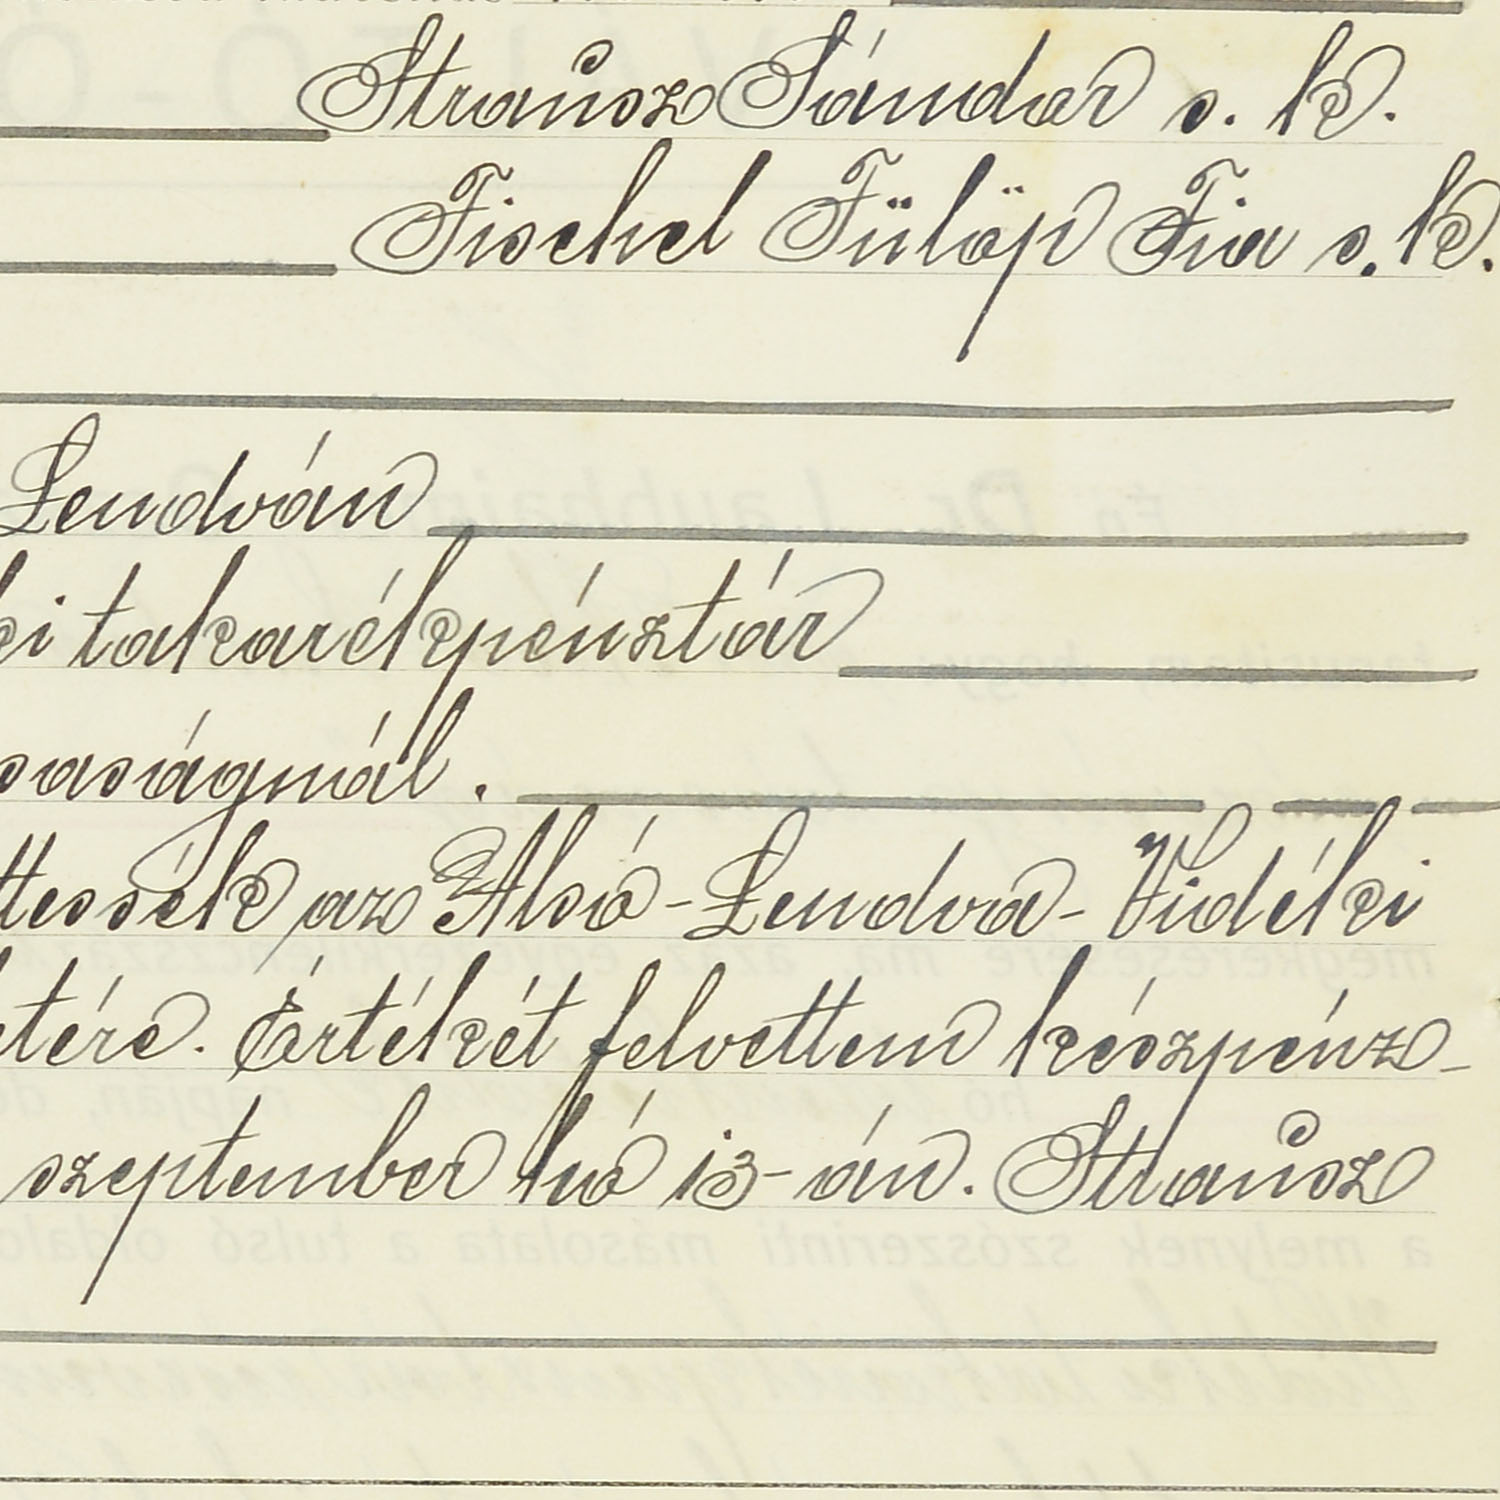 Strausz Sándor s. k.
Fischel Fülöp Fia s. k.
Lendván
ki takarékpénztár
saságnál.
ttessék az Alsó-Lendva-Vidéki
etére. Értékét felvettem készpénz-
szeptember hó 13-án. Strausz